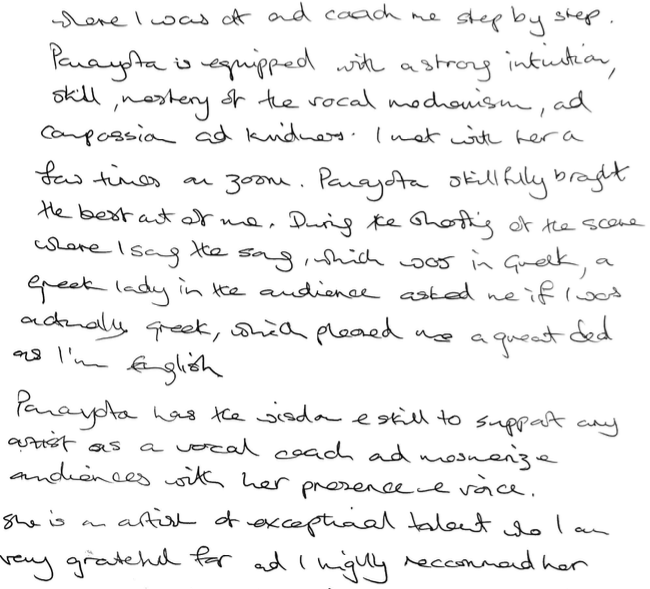 where I was at and coach me step by step.
Panayota is equipped with a strong intuition,
skill, mastery of the vocal mechanism, and
compassion and kindness. I met with her a
few times on zoom. Panayota skillfully brought
the best out of me. During the shooting of the scene
where I sang the song, which was in Greek, a
Greek lady in the audience asked me if I was
actually Greek, which pleased me a great deal
as I'm English
Panayota has the wisdom & skill to support any
artist as a vocal coach and mesmerize
audiences with her presence & voice.
She is an artist of exceptional talent who I am
very grateful for and I highly reccommend her